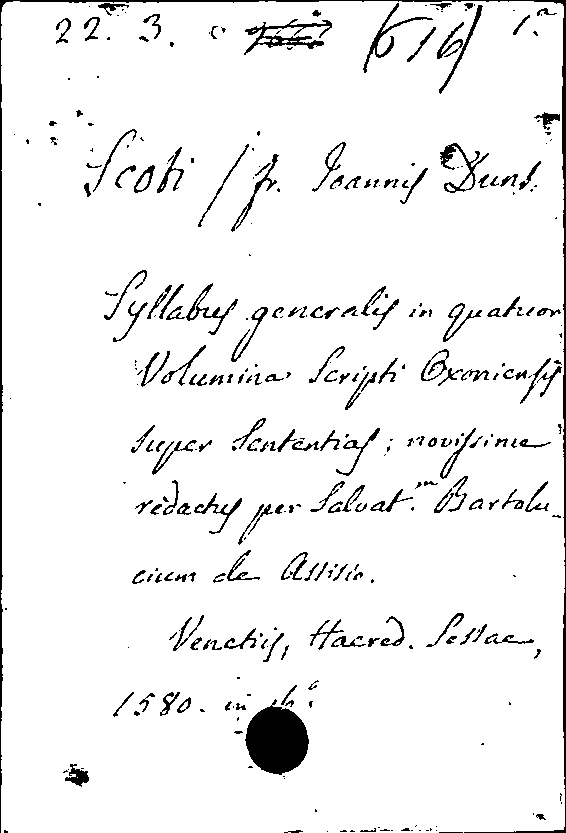 22. 3. c (616) 1.a
Scoti / fr. Joannis Duns.
Syllabus generalis in quatuor
Volumina Scripti Oxoniensis
super Sententias; novissime
redactus per Salvat.m Bartolu-
cium de Assisio.
Venetiis, Haered. Sessae,
1580. in